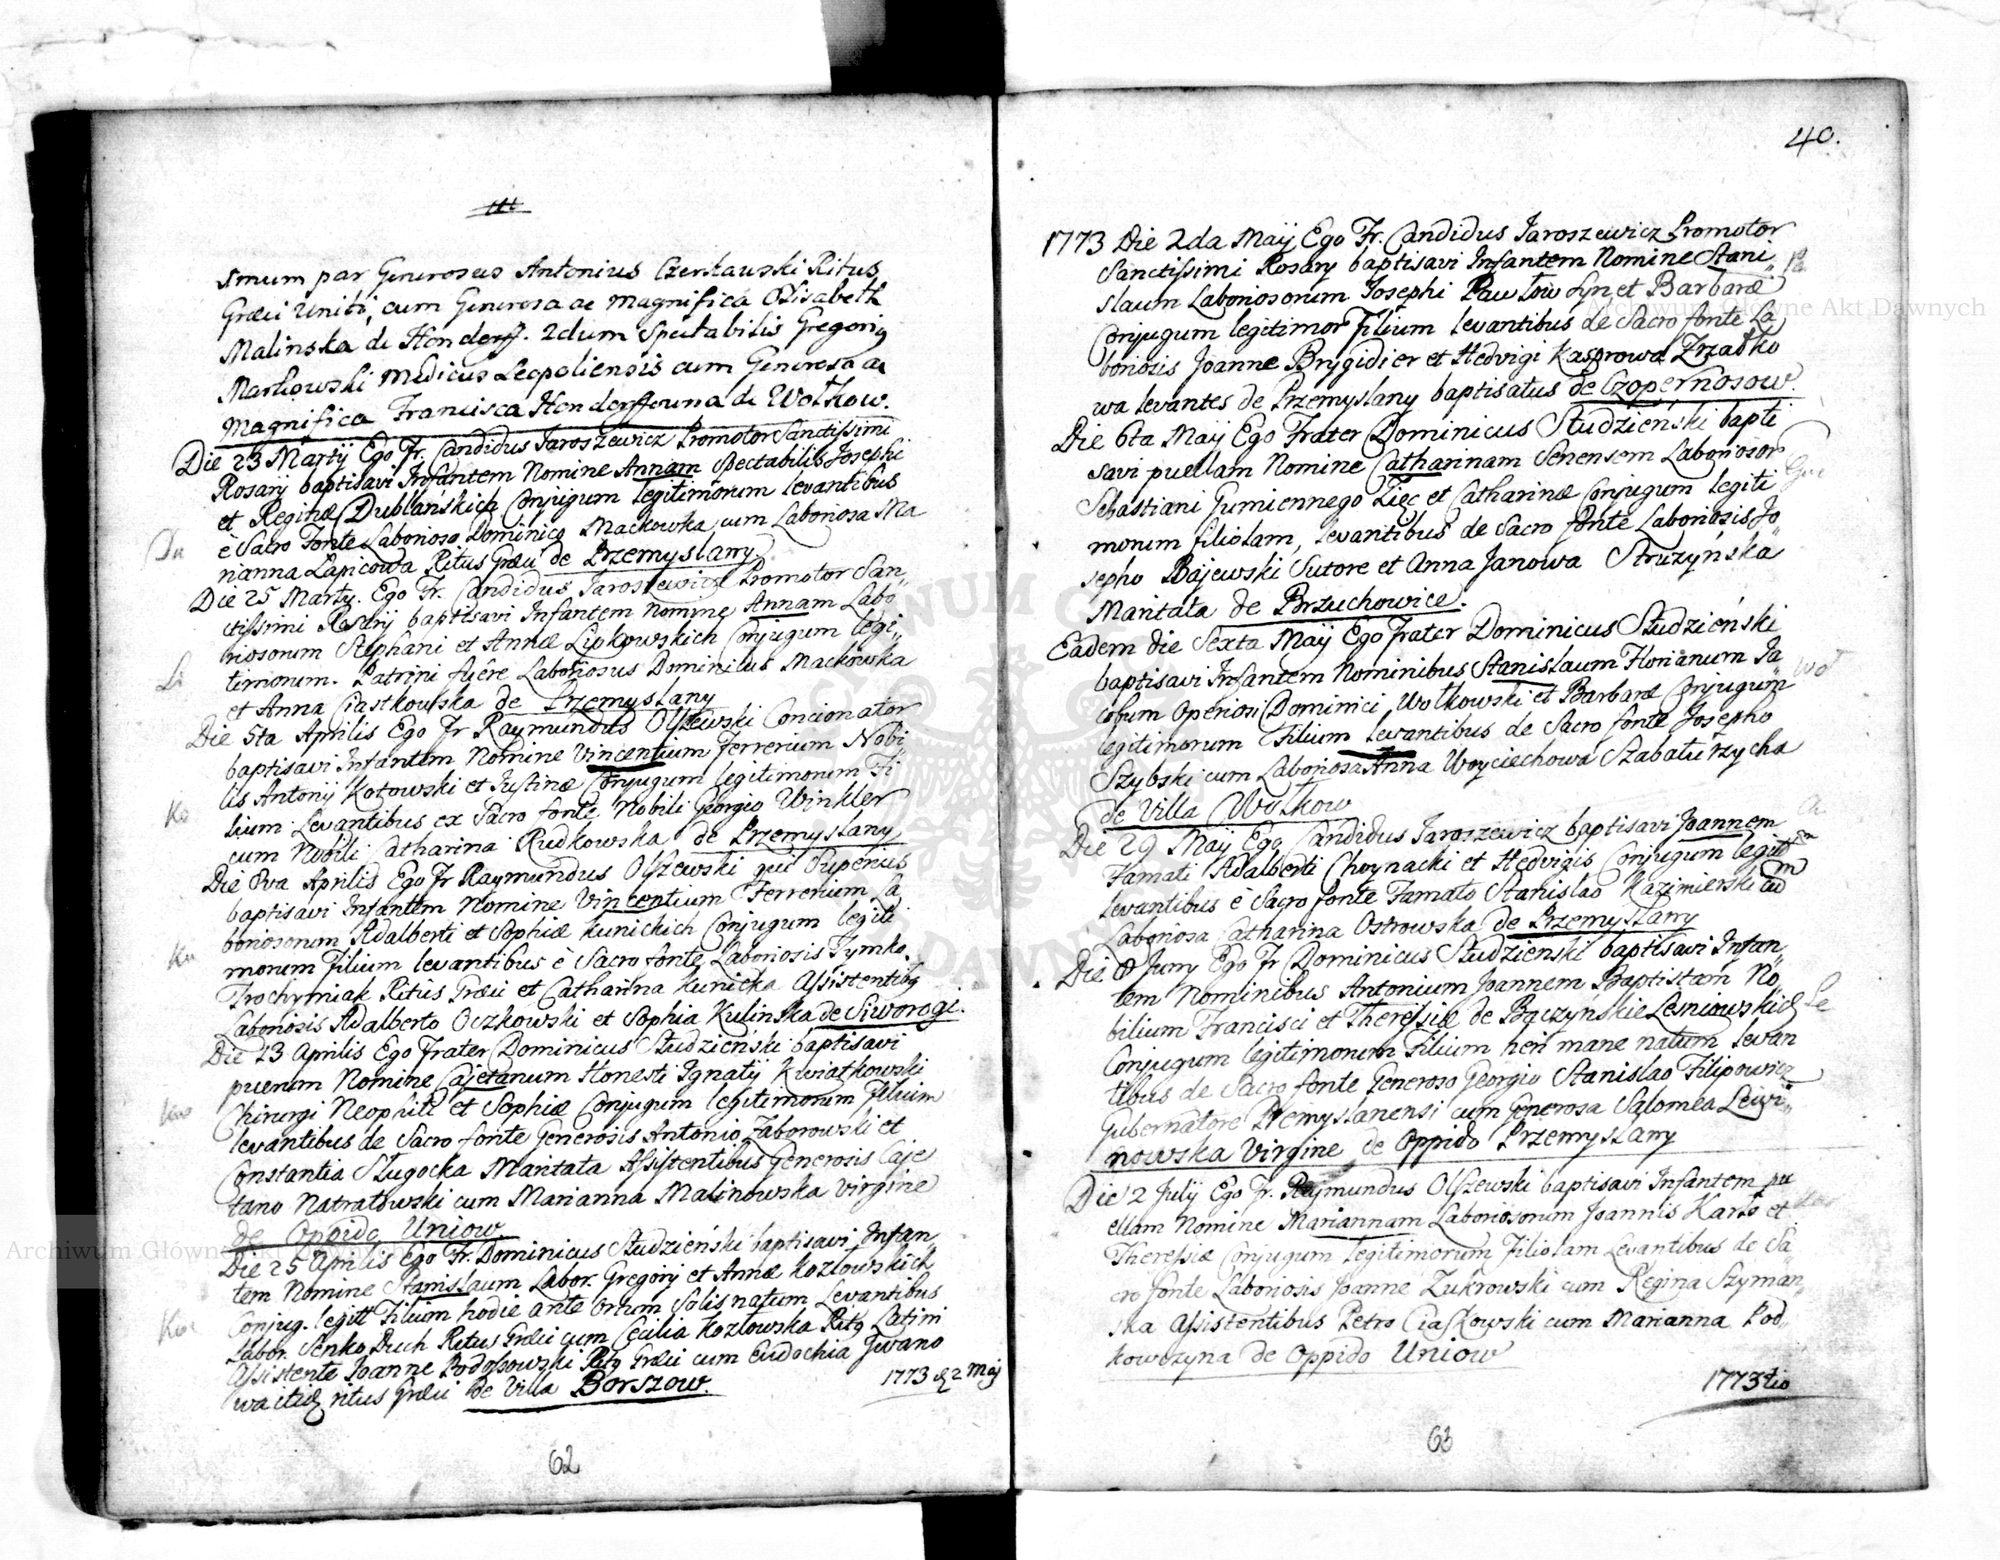 smum par Generosus Antonius Czerkauski Ritus
Græci Uniti, cum Generosa ac Magnifica Elisabeth
Malinska de Henderff. 2dum Spectabilis Gregoriɡ
Markowski Medicus Leopoliensis cum Generosa ac
Magnifica Francisca Henderffowna de Wołkow.
Die 23 Martij Ego Fr. Candidus Jaroszewicz Promotor Sanctissimi
Rosarij baptisavi Infantem Nomine Annam Spectabilis Josephi
et Reginæ Dublańskich Conjugum legitimorum levantibus
è Sacro Fonte Laborioso Dominico Mackowka cum Laboriosa Ma
rianna Lapicowa Ritus Græci de Przemyslany.
Du
Die 25 Martij. Ego Fr. Candidus Jaroszewicz Promotor San„
ctissimi Rosarij baptisavi Infantem Nomine Annam Labo„
riosorum Stephani et Annæ Lipkowskich Conjugum legi„
timorum. Patrini fuêre Laboriosus Dominicus Mackowka
et Anna Ciastkowska de Przemyslany
Li
Die 5ta Aprilis Ego Fr Raymundus Olszewski Concionator
baptisavi Infantem Nomine Vincentium Ferrerium Nobi
lis Antonij Kotowski et Justinæ Conjugum legitimorum Fi
lium Levantibus ex Sacro fonte Nobili Georgio Winkler
cum Nobili Catharina Rudkowska de Przemyslany
Ko
Die 8va Aprilis Ego Fr Raymundus Olszewski qui Superius
baptisavi Infantem Nomine Vincentium Ferrerium La
boriosorum Adalberti et Sophiæ Kunickich Conjugum legiti
morum Filium levantibus è Sacro fonte Laboriosis Tymko
Trochymiak Ritûs Græci et Catharina Kunicka Assistentibɡ
Laboriosis Adalberto Oczkowski et Sophia Kulinska de Siworogi.
Ku
Die 23 Aprilis Ego Frater Dominicus Studzieński baptisavi
puerum Nomine Cajetanum Honesti Ignatij Kwiatkowski
Chirurgi Neophiti et Sophiæ Conjugum legitimorum Filium
levantibus de Sacro fonte Generosis Antonio Zaborowski et
Constantia Sługocka Maritata Assistentibus Generosis Caje
tano Natratowski cum Marianna Malinowska virgine
de Oppido Uniow
Die 25 Aprilis Ego Fr. Dominicus Studzieński baptisavi Infan
tem Nomine Stanislaum Labor. Gregorij et Annæ Kozłowskich
Conjug. legitt Filium hodie ante Ortum Solis natum Levantibus
Labor. Senko Duch Ritus Græci cum Cecilia Kozłowska Ritɡ Latini
Assistente Joanne Podossowski Ritɡ Græci cum Eudochia Jwano
wa itidem ritus Græci De Villa Borszow.
1773 d 2 Maj
62
40.
1773 Die 2da Maij Ego Fr. Candidus Jaroszewicz Promotor
Sanctissimi Rosarij baptisavi Infantem Nomine Stani„
slaum Laboriosorum Josephi Pawłow Syn et Barbaræ
Conjugum legitimor Filium levantibus de Sacro fonte La
boriosis Joanne Brygidier et Hedvigi Kasprowa Zrzadko
wa levantes de Przemyslany baptisatus de Czopernosow.
Die 6ta Maij Ego Frater Dominicus Studzieński bapti
savi puellam Nomine Catharinam Senensem Laborioror
Sebastiani Gumiennego Zięć et Catharinæ Conjugum legiti
morum filiolam, levantibus de Sacro fonte Laboriosis Jo„
sepho Bajewski Sutore et Anna Janowa Struzyńska
Maritata de Brzuchowice.
Eadem die Sexta Maij Ego Frater Dominicus Studzieński
baptisavi Infantem Nominibus Stanislaum Florianum Ja„
cobum Operiosi Dominici Wołkowski et Barbaræ Conjugum
legitimorum Filium levantibus de Sacro fonte Josepho
Szybski cum Laboriosa Anna Woyciechowa Szabaturzycha
de Villa Wołkow
Woł
Die 29 Maij Ego Candidus Jaroszewicz baptisavi Joannem
Famati Adalberti Choynacki et Hedvigis Conjugum legit
levantibus è Sacro fonte Famato Stanislao Kazimierski cum
Laboriosa Catharina Ostrowska de Przemyslany
Die 8 Juny Ego Fr Dominicus Studzienski baptisavi Infan„
tem Nominibus Antonium Joannem Baptistam No„
bilium Francisci et Theressiæ de Bączyńskie Lesniowskich
Conjugum legitimorum Filium heri mane natum levan
tibus de Sacro fonte Generoso Georgio Stanislao Filipowicz
Gubernatore Premyslanensi cum Generosa Salomea Lewi„
nowska Virgine de Oppido Przemyslany
Le
Die 2 Julij Ego Fr. Raymundus Olszewski baptisavi Infantem pu
ellam Nomine Mariannam Laboriosorum Joannis Karło et
Theressiæ Conjugum legitimorum Filiolam Levantibus de Sa„
cro fonte Laboriosis Joanne Zukrowski cum Regina Szyman„
ska Assistentibus Petro Ciaskowski cum Marianna Pod„
kowczyna de Oppido Uniow
1773tio
63
Archiwum Główne Akt Dawnych
Archiwum Główne Akt Dawnych